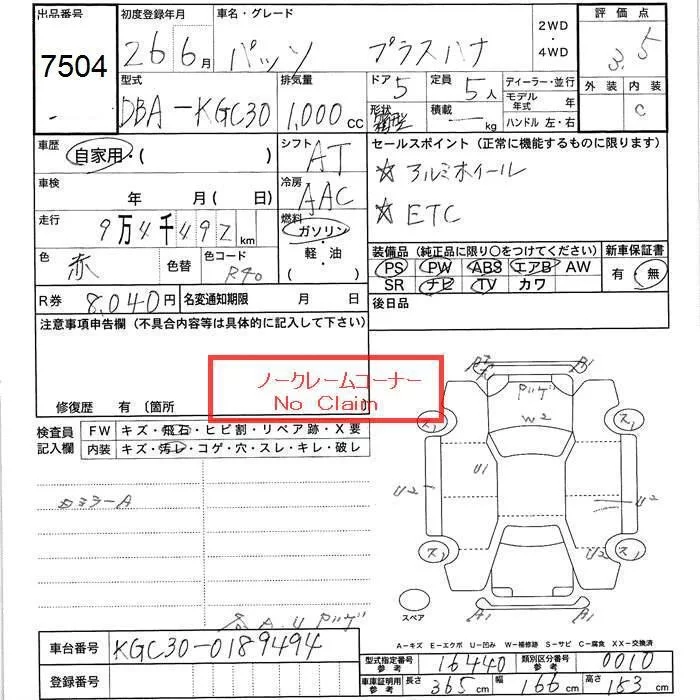 出品番号 初度登録年月 車名・グレード 2WD ・4WD 評価点
7504 26 6月 パッソ プラスハナ 3.5
型式 排気量 ドア 5 定員 5人 ディーラー・並行 外装 内装
DBA-KGC30 1,000cc 形状 箱型 積載 — kg モデル年式 年 C
ハンドル 左・右
車歴 自家用・( ) シフト AT セールスポイント(正常に機能するものに限ります)
車検 年 月(日) 冷房 AAC ☆アルミホイール
走行 9万4千492km 燃料 ガソリン・軽・油 ( ) ☆ETC
色 赤 色替 色コード R40
装備品(純正品に限り○をつけてください) 新車保証書
PS PW ABS エアB AW 有・無
SR ナビ TV カワ
R券 8,040円 名変通知期限 月 日 後日品
注意事項申告欄(不具合内容等は具体的に記入して下さい)
ノークレームコーナー
No Claim
修復歴 有 〔箇所
検査員記入欄 FW キズ・飛石・ヒビ割・リペア跡・X要
内装 キズ・汚レ・コゲ・穴・スレ・キレ・破レ
カミラーA
A1
W2
U1
U2 U2
U2
ス1 ス1
ス1 ス1
A1 A1
スペア
A-キズ E-エクボ U-凹み W-補修跡 S-サビ C-腐食 XX-交換済
車台番号 KGC30-0189494
登録番号
型式指定番号 参考 16440 類別区分番号 参考 0010
車庫証明用 参考 長さ 365cm 幅 166cm 高さ 153cm